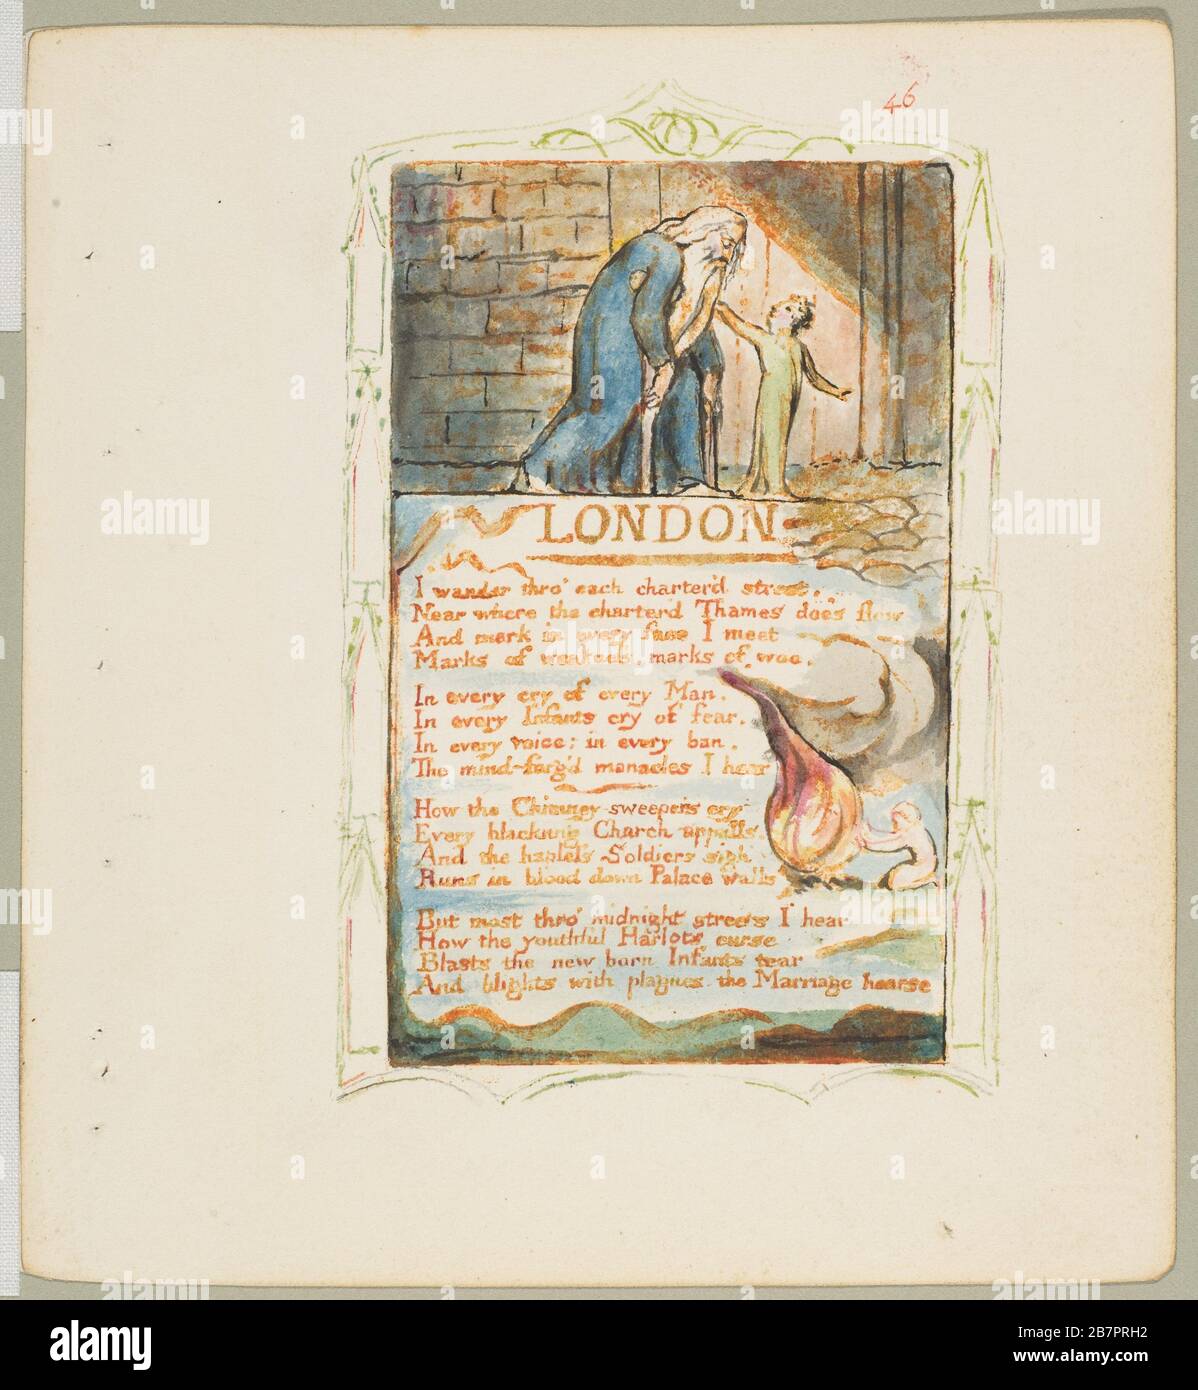 46
LONDON
I wander thro' each charter'd street,
Near where the charter'd Thames does flow
And mark in every face I meet
Marks of weakness, marks of woe.
In every cry of every Man,
In every Infants cry of fear,
In every voice; in every ban,
The mind-forg'd manacles I hear
How the Chimney-sweepers cry
Every blackning Church appalls,
And the hapless Soldiers sigh
Runs in blood down Palace walls
But most thro' midnight streets I hear
How the youthful Harlots curse
Blasts the new born Infants tear
And blights with plagues the Marriage hearse
alamy
Image ID: 2B7PRH2
www.alamy.com